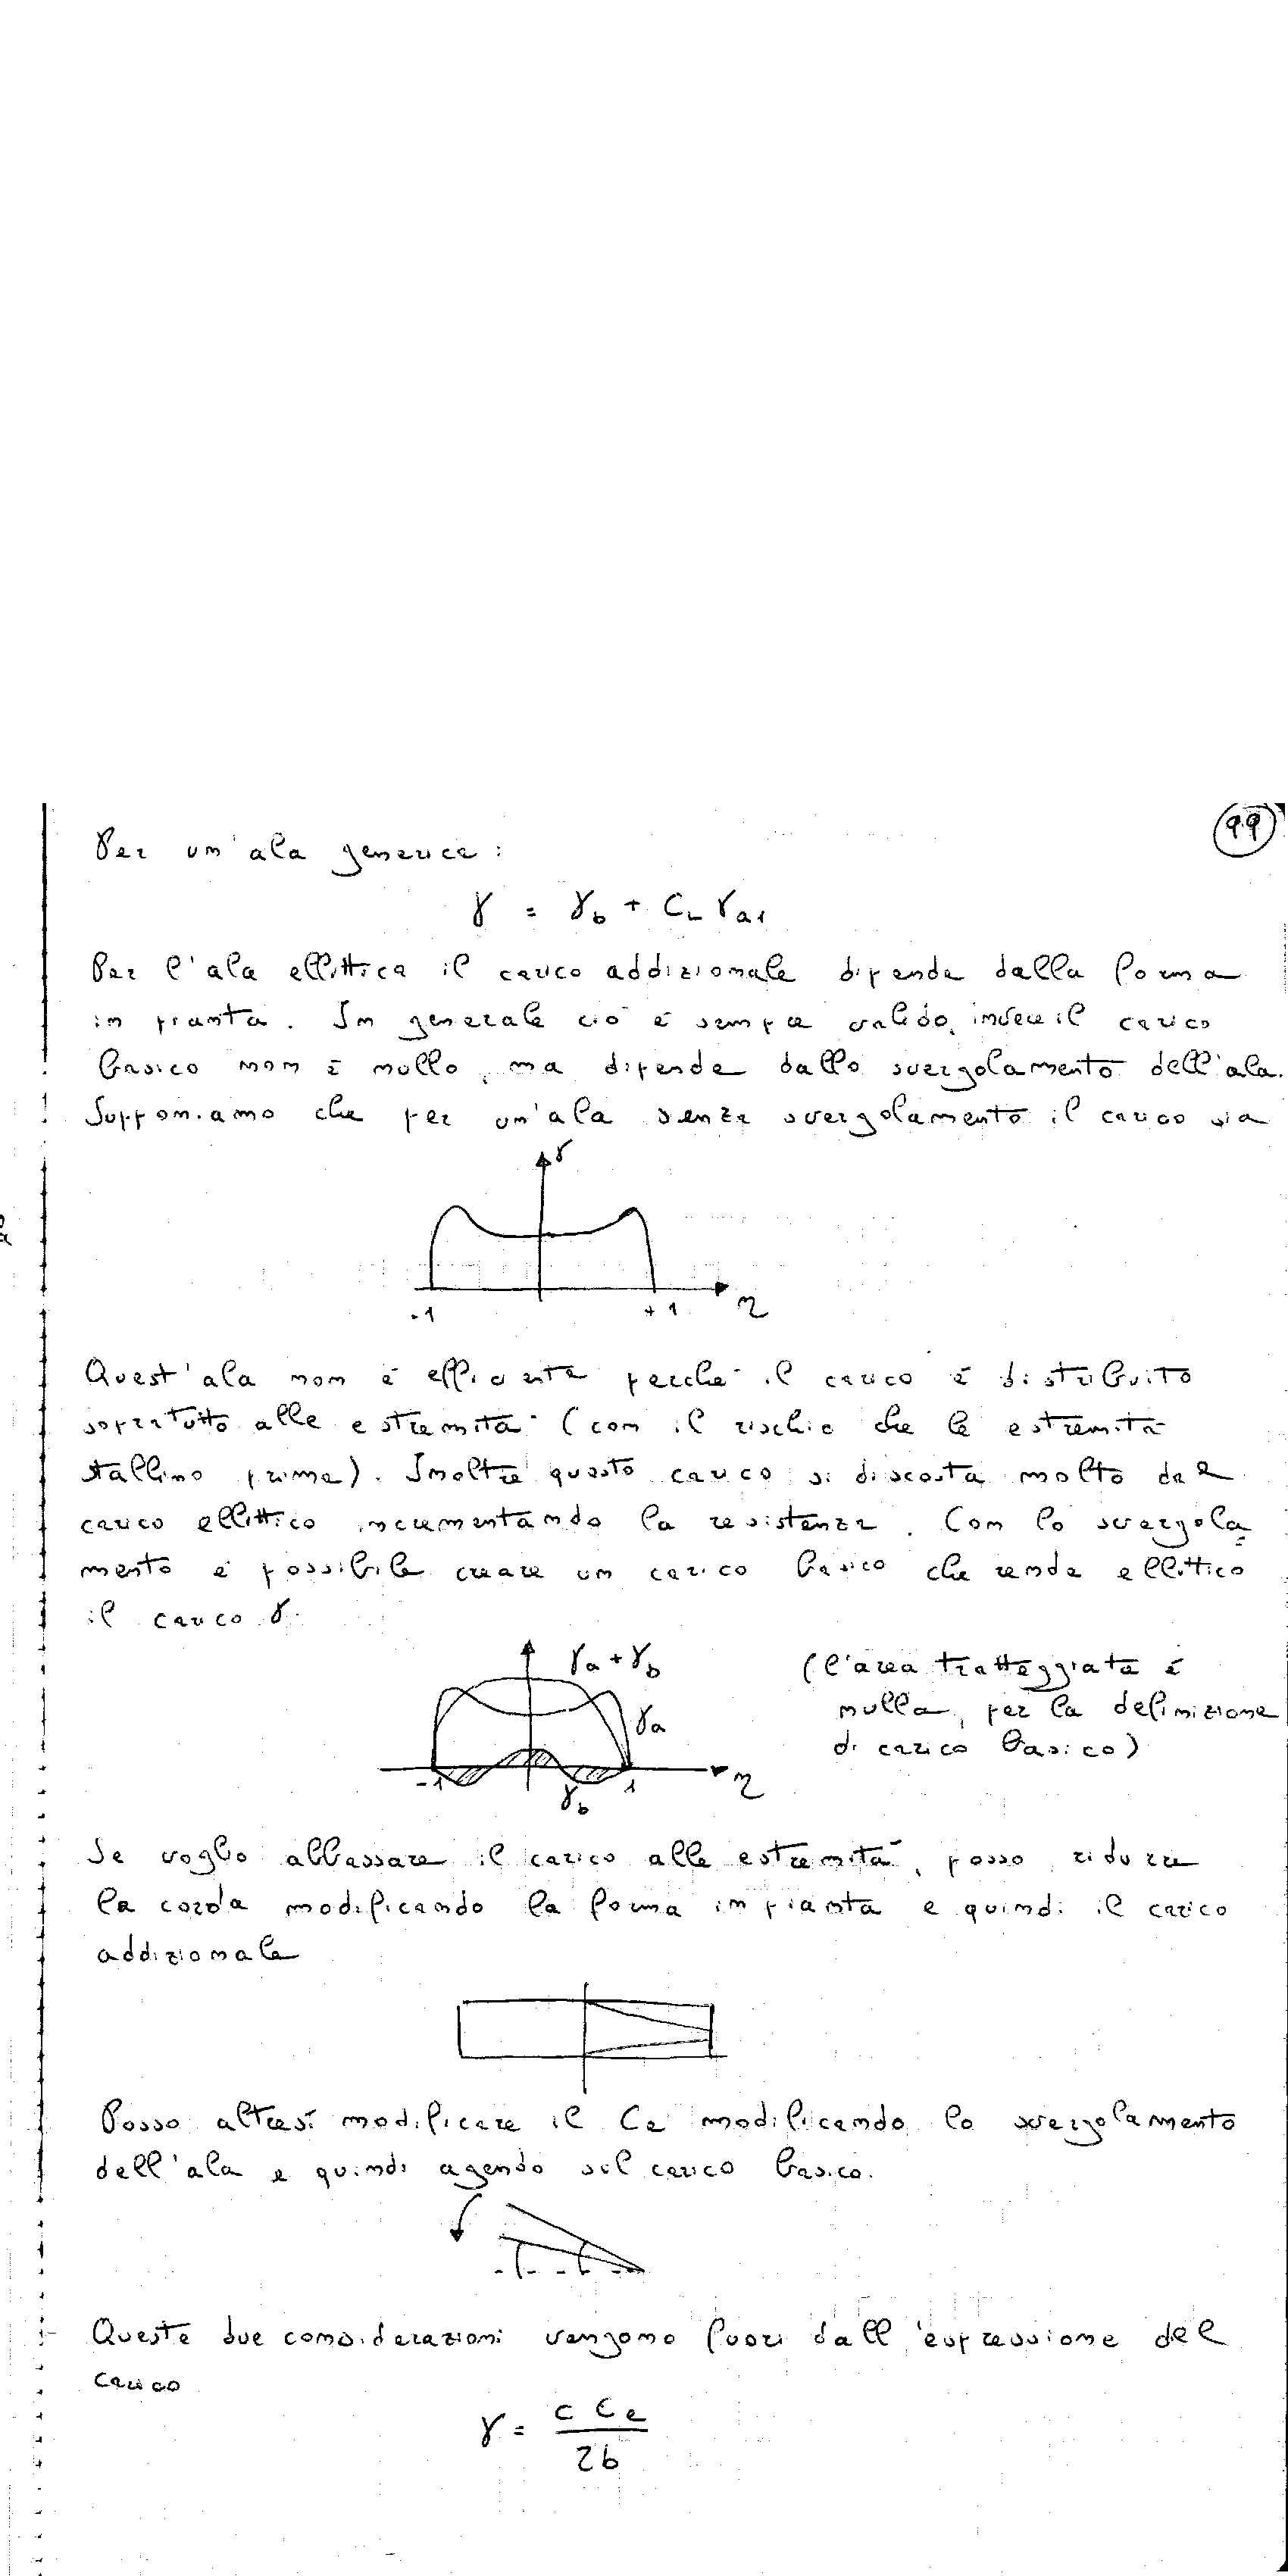 99
Per un'ala generica:
γ = γb + CL γa1
Per l'ala ellittica il carico addizionale dipende dalla forma
in pianta. In generale ciò è sempre valido, invece il carico
basico non è nullo, ma dipende dallo svergolamento dell'ala.
Supponiamo che per un'ala senza svergolamento il carico sia
γ
-1 +1 η
Quest'ala non è efficiente perché il carico è distribuito
sopratutto alle estremità (con il rischio che le estremità
stallino prima). Inoltre questo carico si discosta molto dal
carico ellittico incrementando la resistenza. Con lo svergola
mento è possibile creare un carico basico che renda ellittico
il carico γ.
γa + γb
(l'area tratteggiata è
nulla, per la definizione
di carico basico)
γa
-1 1 η
γb
Se voglio abbassare il carico alle estremità, posso ridurre
la corda modificando la forma in pianta e quindi il carico
addizionale
Posso altresì modificare il Cl modificando lo svergolamento
dell'ala e quindi agendo sul carico basico.
Queste due considerazioni vengono fuori dall'espressione del
carico
γ = c Cl / 2b